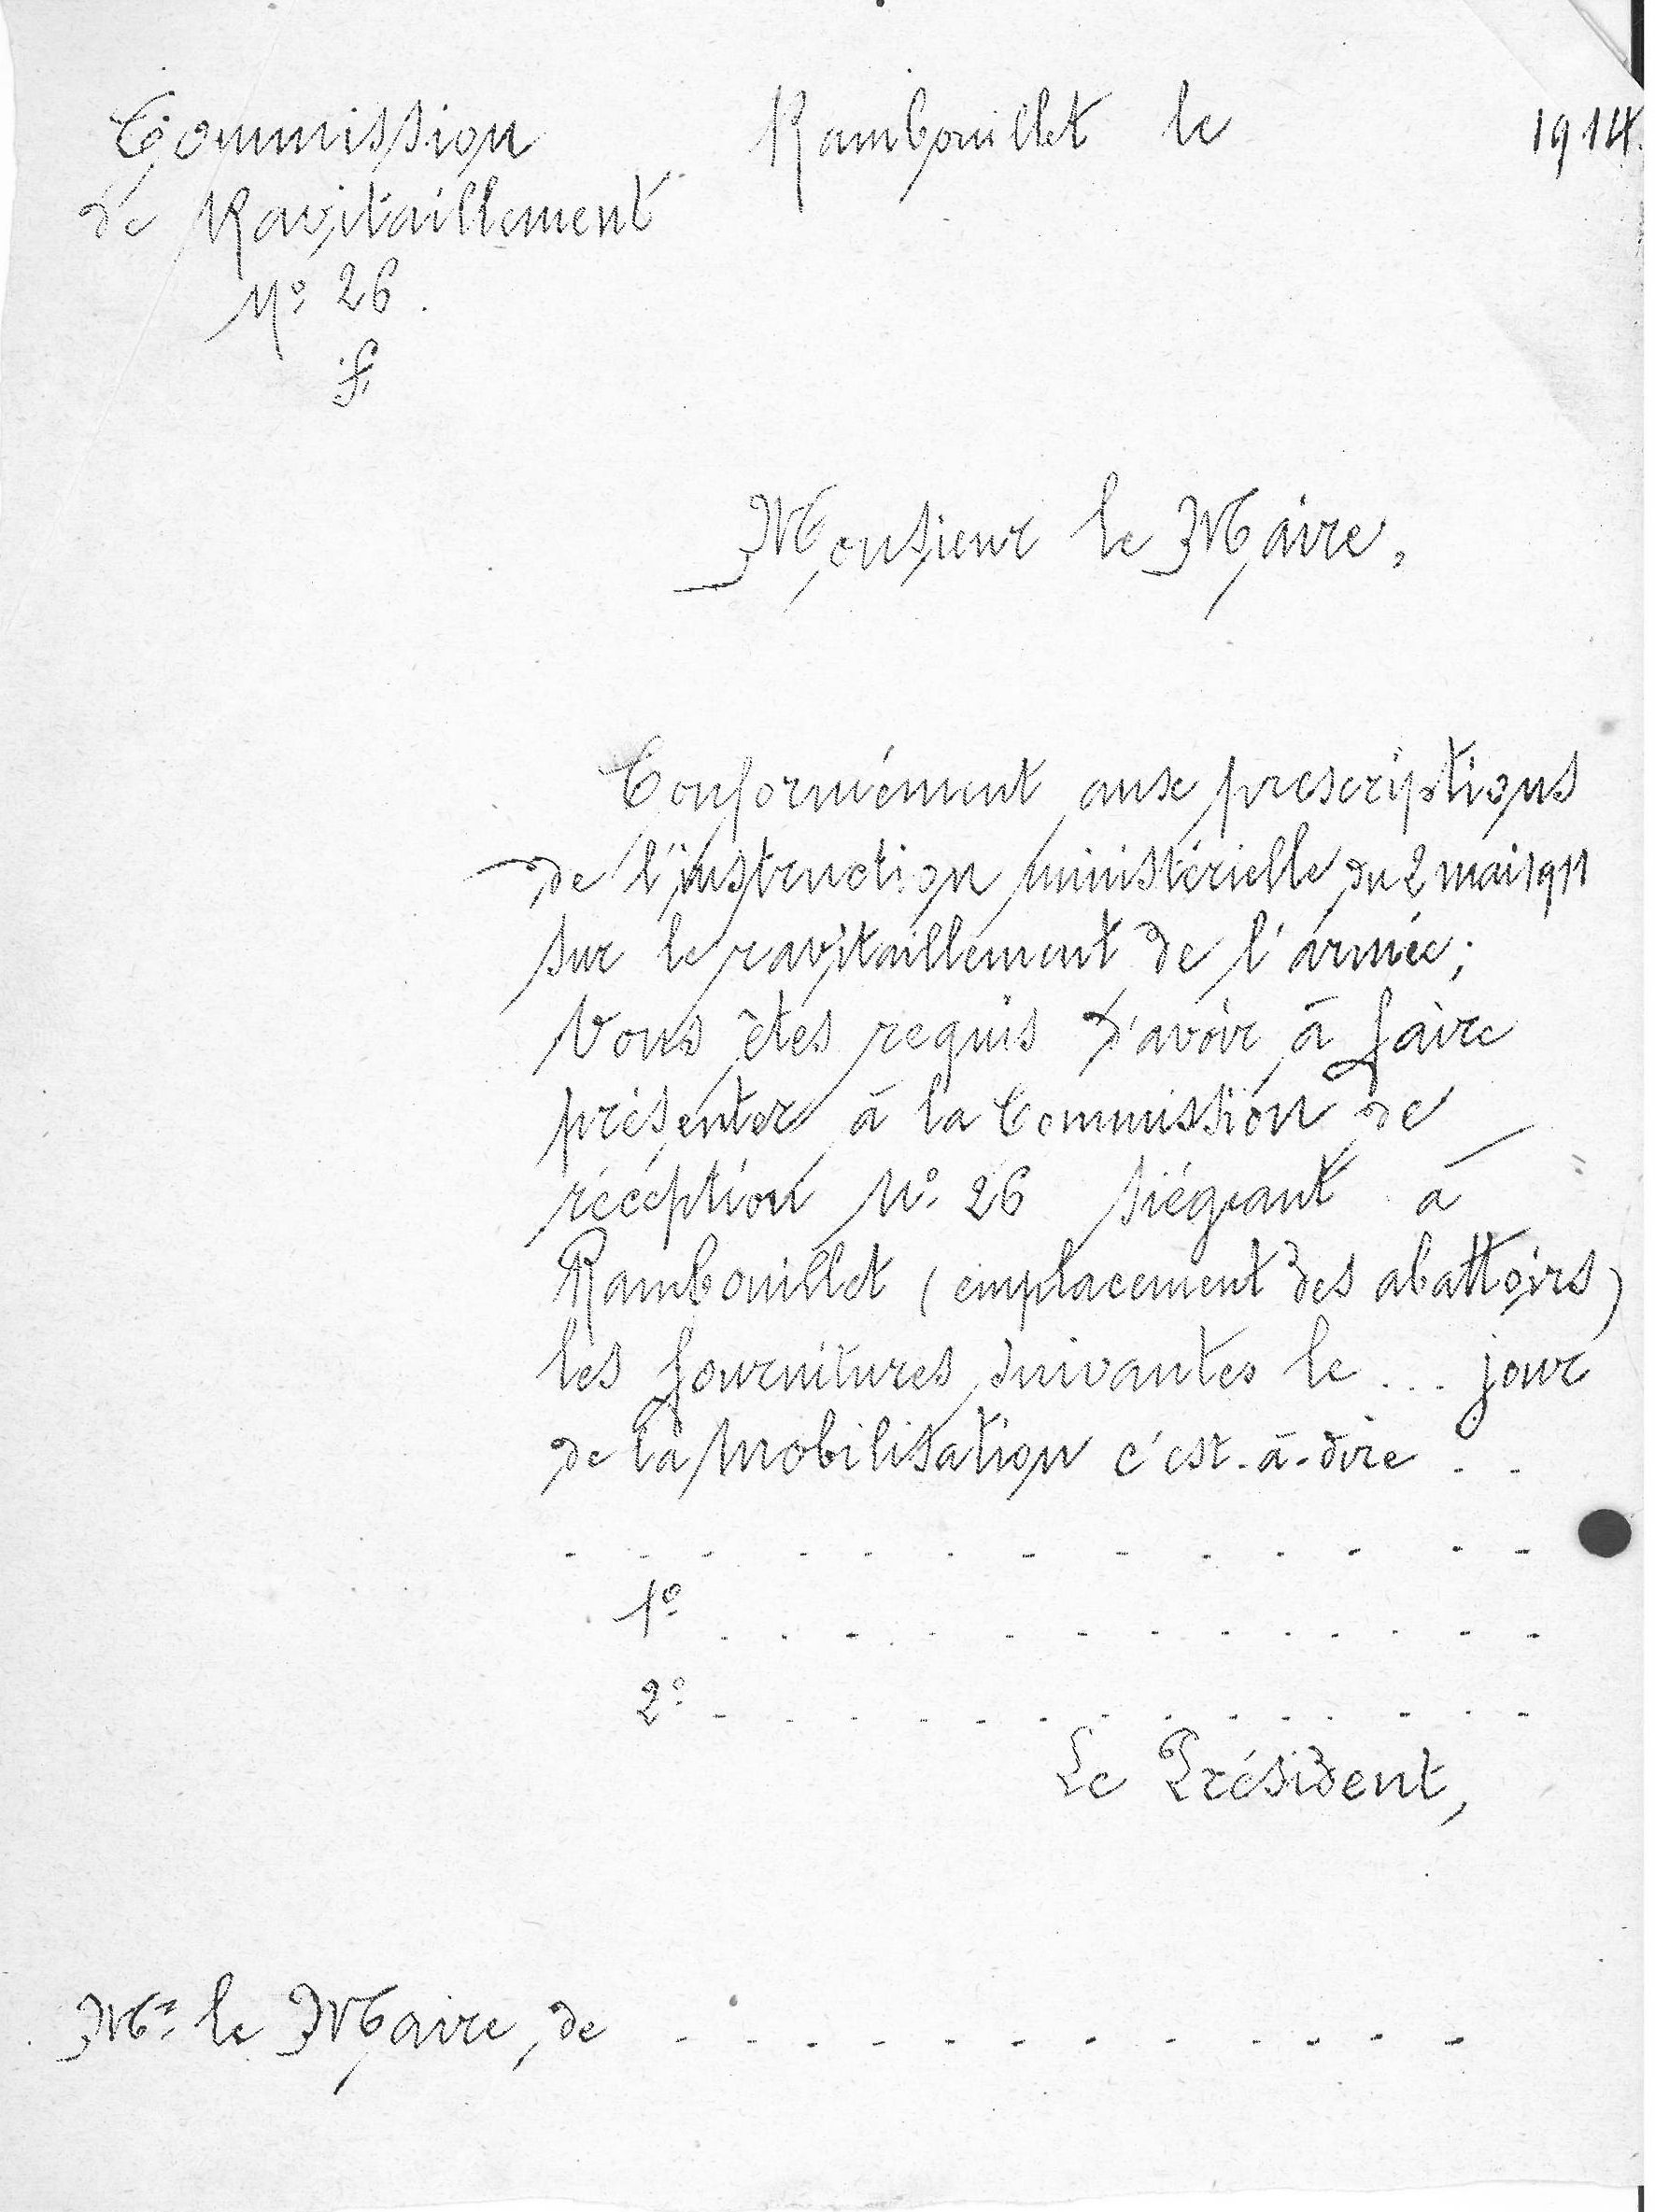 Commission Rambouillet le 1914.
de Ravitaillement
N° 26.
Monsieur le Maire,
Conformément aux prescriptions
de l'instruction ministérielle du 2 mai 1911
sur le ravitaillement de l'armée;
Vous êtes requis d'avoir à faire
présenter à la Commission de
réception N° 26 siégeant à
Rambouillet (emplacement des abattoirs)
les fournitures suivantes le ... jour
de la mobilisation c'est-à-dire . .
. . . . . . . . . . . . .
1° . . . . . . . . . . . .
2° . . . . . . . . . . . . .
Le Président,
Mr le Maire, de . . . . . . . . . . . .